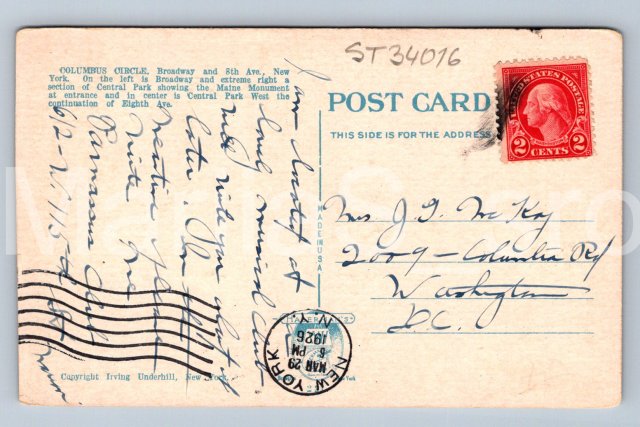 COLUMBUS CIRCLE, Broadway and 8th Ave., New
York. On the left is Broadway and extreme right a
section of Central Park showing the Maine Monument
at entrance and in center is Central Park West the
continuation of Eighth Ave.
ST34016
POST CARD
THIS SIDE IS FOR THE ADDRESS
UNITED STATES POSTAGE
2 CENTS 2
MADE IN USA
I am located at
lovely musical club
will write you about it
later. In the
meantime please
write me
Parnassus Club
612-W. 115th St
Mrs J. G. McKay
2009 - Columbia Rd
Washington
D.C.
NEW YORK
N.Y.
MAR 29
6 PM
1926
Copyright Irving Underhill, New York.